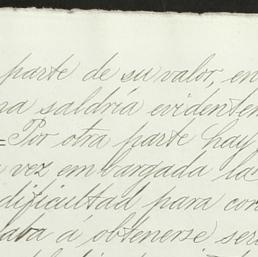 parte de su valor, en
na saldría evidentem
= Por otra parte hay
vez embargada la
dificultad para con
taba á obtenerse ser